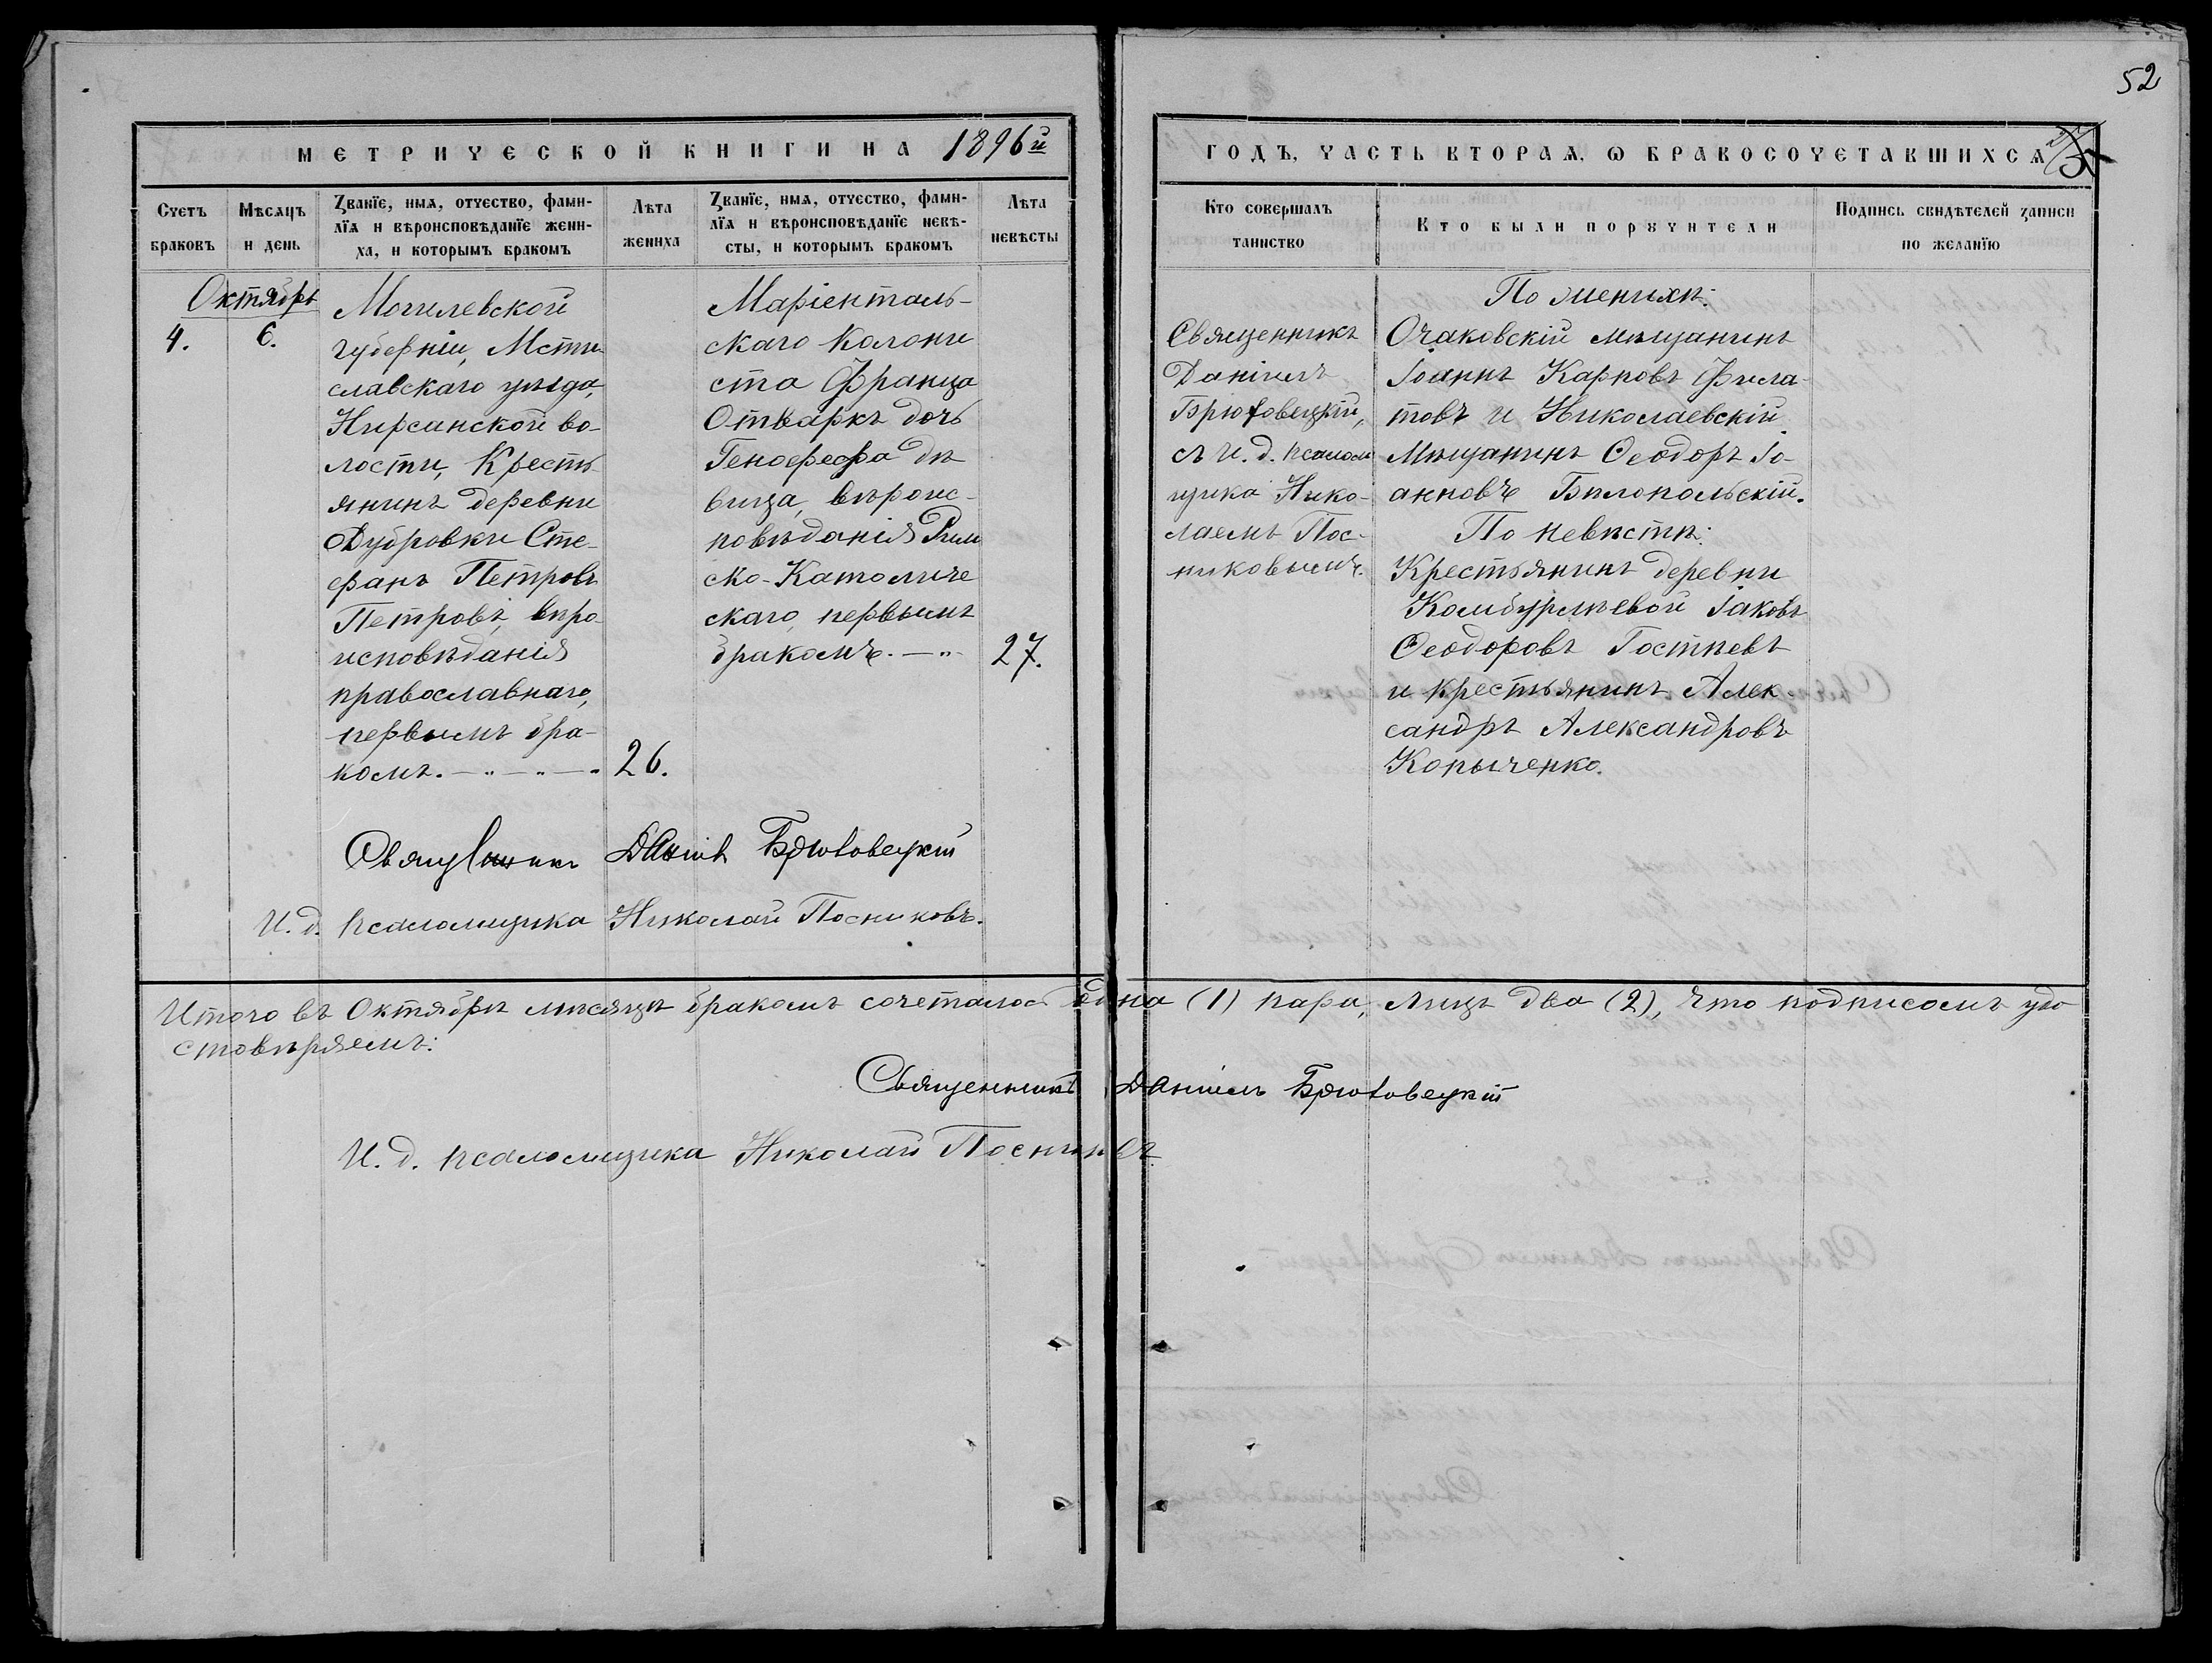 52
МЕТРИЧЕСКОЙ КНИГИ НА 1896й
ГОДЪ, ЧАСТЬ ВТОРАЯ, Ѡ БРАКОСОЧЕТАВШИХСЯ
Счетъ браковъ
Мѣсяцъ и день
Званїе, имя, отчество, фами-
лїя и вѣроисповѣданїе жени-
ха, и которымъ бракомъ
Лѣта жениха
Званїе, имя, отчество, фами-
лїя и вѣроисповѣданїе невѣ-
сты, и которымъ бракомъ
Лѣта невѣсты
Кто совершалъ таинство
Кто были порꙋчители
Подпись свидѣтелей записи по желанїю
Октябрь
4.
6.
Могилевской
губерніи, Мсти-
славскаго уѣзда,
Кирсанской во-
лости, Кресть
янинъ деревни
Дубровки Сте-
фанъ Петровъ
Петровъ, вѣро
исповѣданія
православнаго,
первымъ бра-
комъ.
26.
Маріенталь-
скаго Колони
ста Франца
Отмаркъ дочь
Геноефефа дѣ
вица, вѣроис-
повѣданія Рим
ско-Католиче
скаго, первымъ
бракомъ.
27.
Священникъ
Даніилъ
Брюховецкій,
съ И. д. псалом
щика Нико-
лаемъ Пос-
никовымъ.
По женихѣ:
Очаковскій мѣщанинъ
Іоаннъ Карповъ Фила-
товъ и Николаевскій
Мѣщанинъ Ѳеодоръ Іо-
анновъ Бѣлопольскій.
По невѣстѣ:
Крестьянинъ деревни
Комбурлѣевой Іаковъ
Ѳеодоровъ Гостѣевъ
и крестьянинъ Алек
сандръ Александровъ
Копыченко.
Священникъ Даніилъ Брюховецкій
И. д. псаломщика Николай Посниковъ.
Итого въ Октябрѣ мѣсяцѣ бракомъ сочеталось одна (1) пара, лицъ два (2), что подписомъ удо
стовѣряемъ:
Священникъ Даніилъ Брюховецкій
И. д. псаломщика Николай Посниковъ